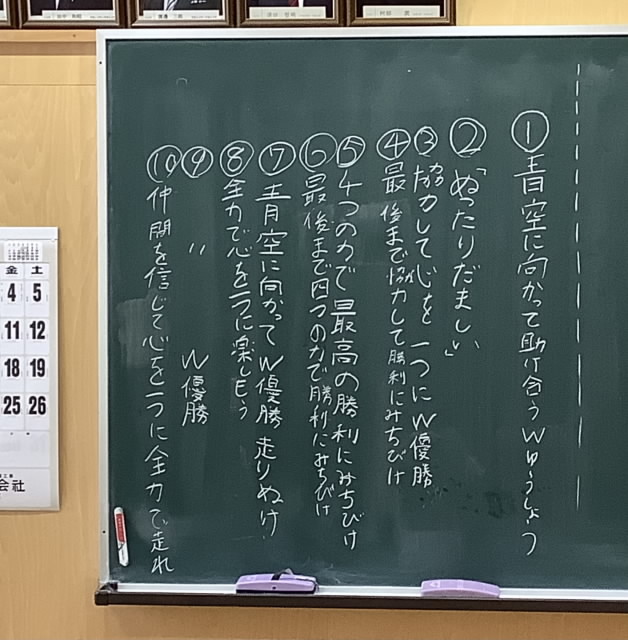 ①青空に向かって助け合うWゆうしょう
②「ぬったりだましい」
③協力して心を一つにW優勝
④最後まで協力して勝利にみちびけ
⑤4つの力で最高の勝利にみちびけ
⑥最後まで四つの力で勝利にみちびけ
⑦青空に向かってW優勝 走りぬけ
⑧全力で心を一つに楽しもう
⑨ 〃 W優勝
⑩仲間を信じて心を一つに全力で走れ
金 土
4 5
11 12
18 19
25 26
会社